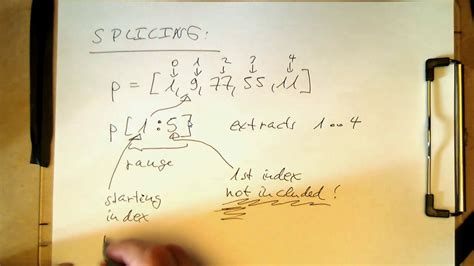 SPLICING:
0 1 2 3 4
p = [1, 9, 77, 55, 11]
p[1:5] extracts 1...4
range
starting index
1st index not included!